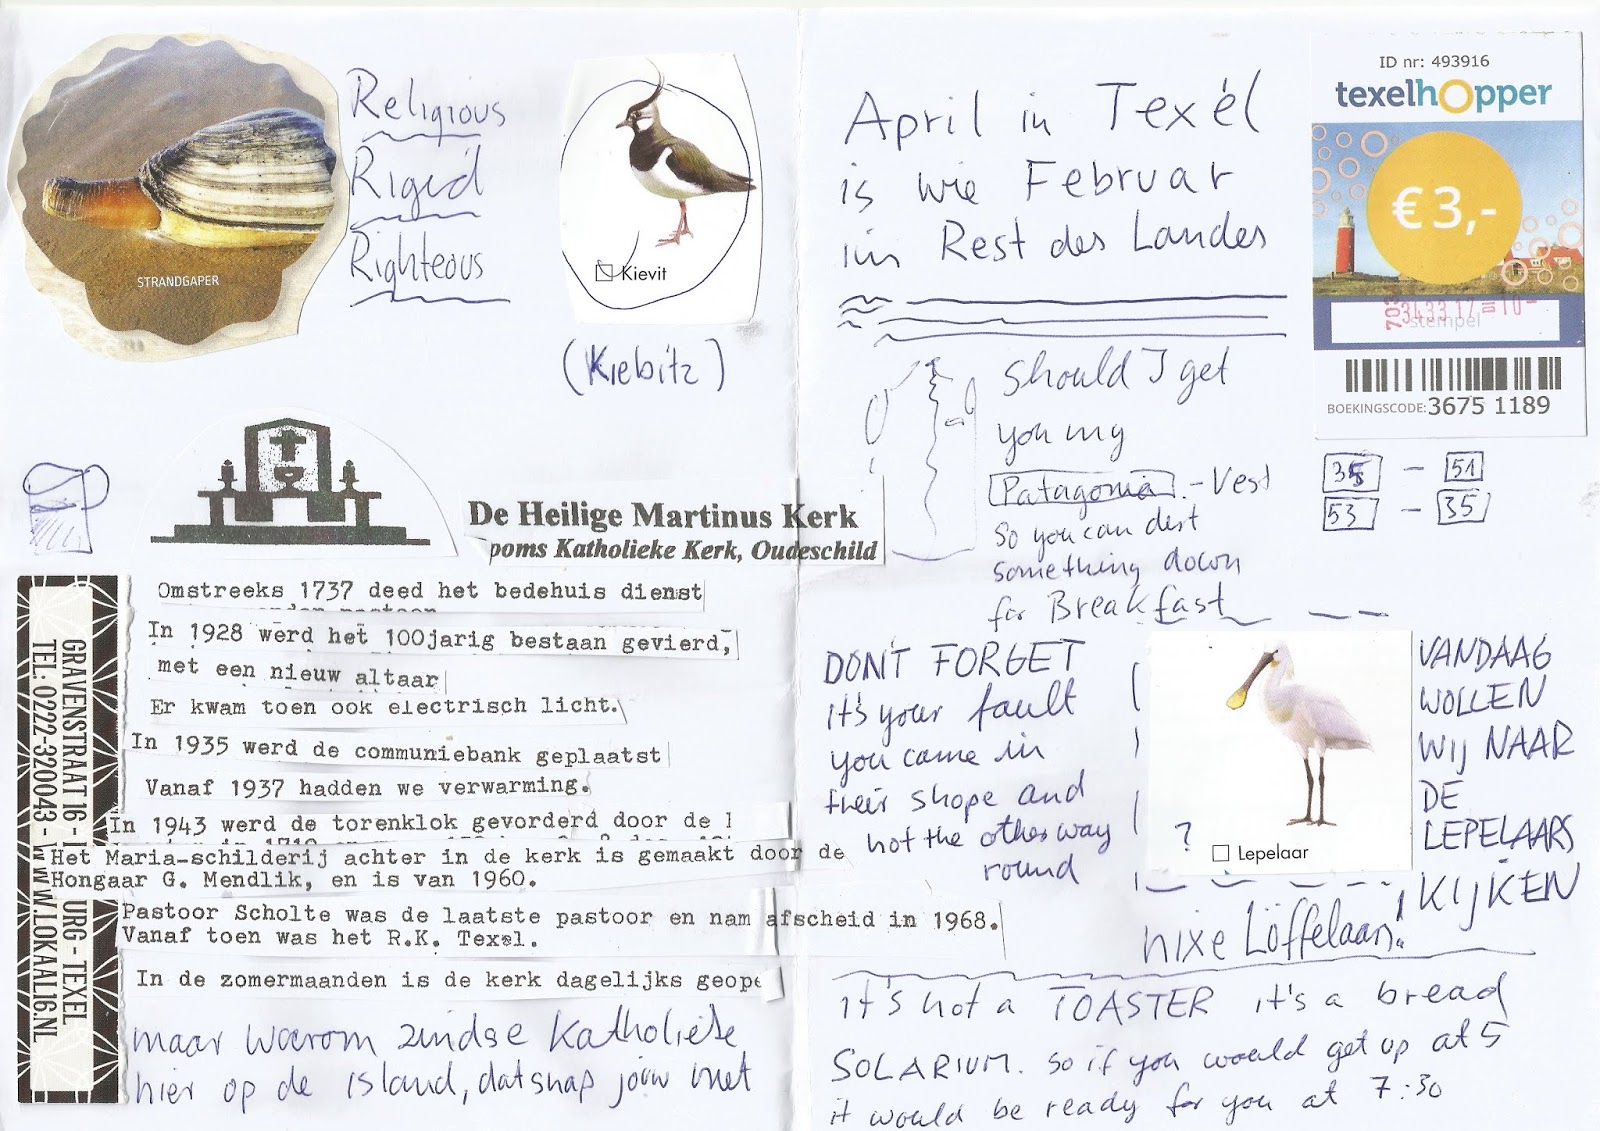 STRANDGAPER
Religious
Rigid
Righteous
Kievit
(Kiebitz)
De Heilige Martinus Kerk
poms Katholieke Kerk, Oudeschild
GRAVENSTRAAT 16 -
URG - TEXEL
TEL: 0222-320043 - WWW.LOKAAL16.NL
Omstreeks 1737 deed het bedehuis dienst
In 1928 werd het 100jarig bestaan gevierd,
met een nieuw altaar
Er kwam toen ook electrisch licht.
In 1935 werd de communiebank geplaatst
Vanaf 1937 hadden we verwarming.
In 1943 werd de torenklok gevorderd door de
Het Maria-schilderij achter in de kerk is gemaakt door de
Hongaar G. Mendlik, en is van 1960.
Pastoor Scholte was de laatste pastoor en nam afscheid in 1968.
Vanaf toen was het R.K. Texel.
In de zomermaanden is de kerk dagelijks geope
maar warom zindse Katholieke
hier op de island, datsnap jouw niet
April in Texel
is wie Februar
im Rest des Landes
ID nr: 493916
texelhopper
€ 3,-
stempel
BOEKINGSCODE: 3675 1189
35 - 51
53 - 35
should I get
you my
Patagonia - Vest
so you can
something down
for Breakfast
DON'T FORGET
it's your fault
you came in
their shope and
not the other way
round
?
Lepelaar
VANDAAG
WOLLEN
WIJ NAAR
DE
LEPELAARS
KIJKEN
nixe Löffelaan!
it's not a TOASTER it's a bread
SOLARIUM. so if you would get up at 5
it would be ready for you at 7:30